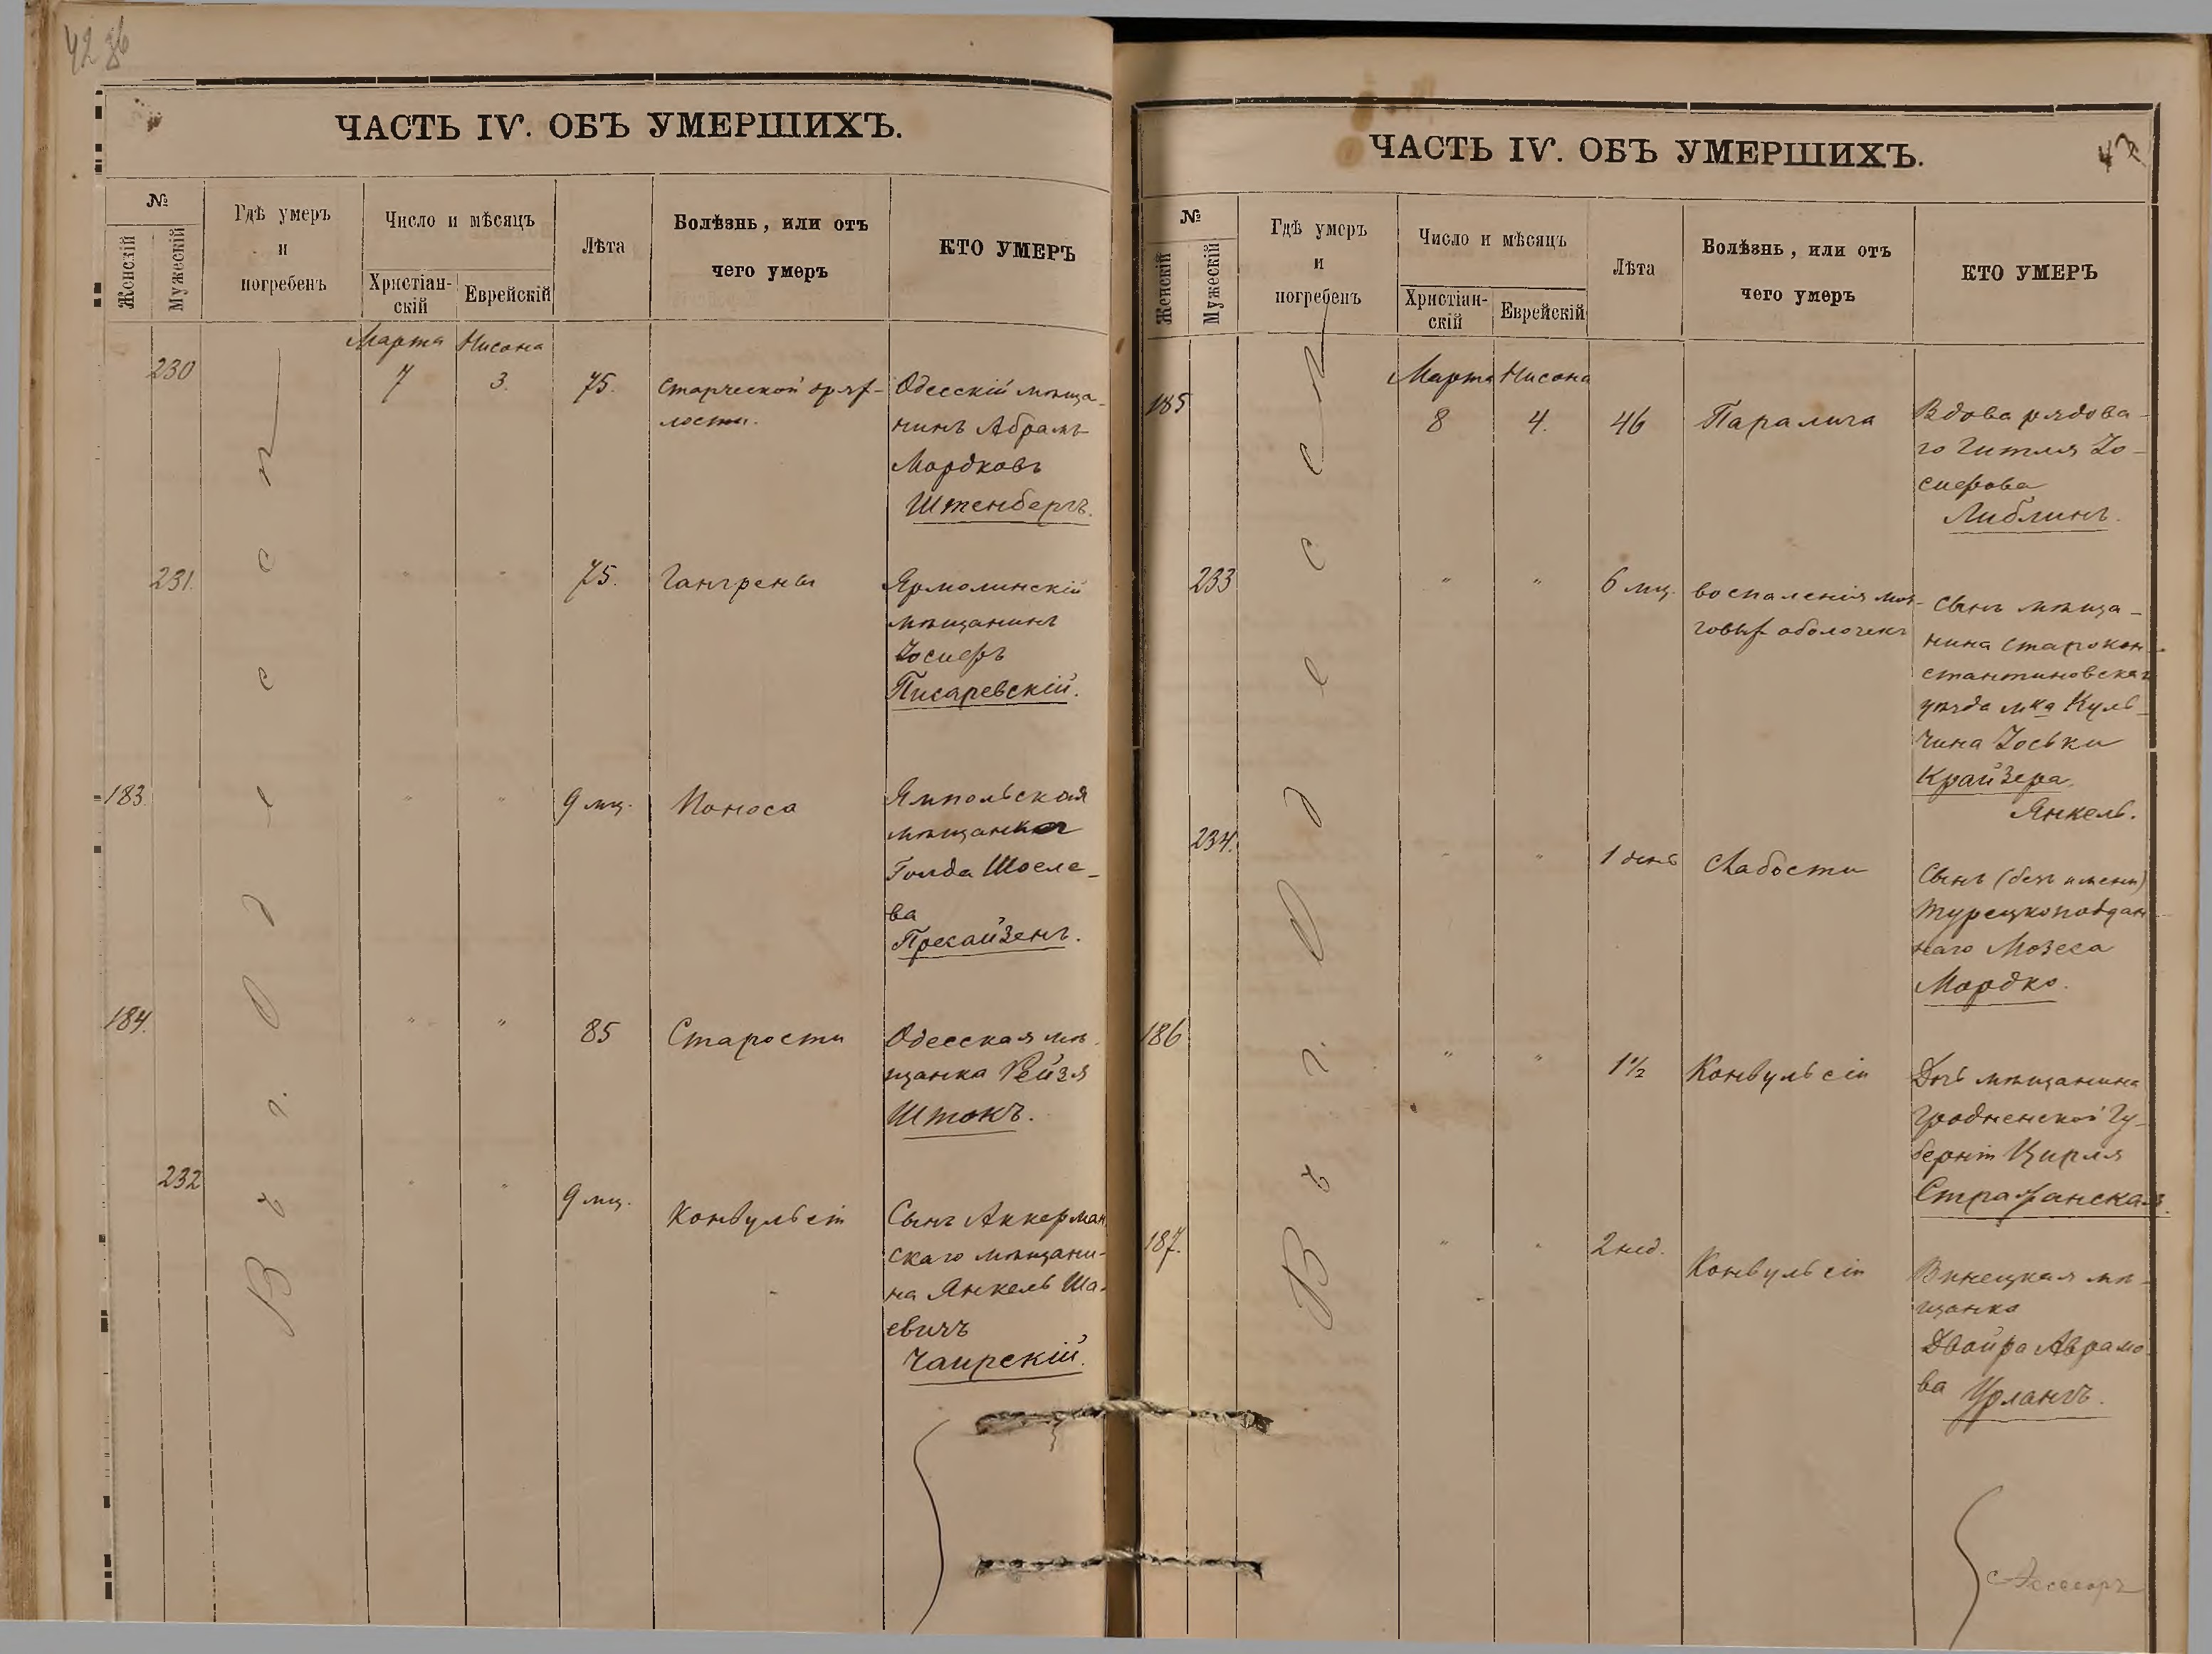 42 об
ЧАСТЬ IV. ОБЪ УМЕРШИХЪ.
№
Женскій
Мужескій
Гдѣ умеръ
и
погребенъ
Число и мѣсяцъ
Христіан-
скій
Еврейскій
Лѣта
Болѣзнь, или отъ
чего умеръ
КТО УМЕРЪ
Въ г. Одессѣ
Марта Нисона
230 7 3. 75. Старческой дрях-
лости.
Одесскій мѣща-
нинъ Абрамъ
Мордковъ
Штенбергъ.
231. " " 75. Гангрены
Ярмолинскій
мѣщанинъ
Іосифъ
Писаревскій.
183. " " 9 мц. Поноса
Ямпольская
мѣщанка
Голда Шоеле-
ва
Пресайзенъ.
184. " " 85 Старости
Одесская мѣ-
щанка Рейзя
Штокъ.
232 " " 9 мц. Конвульсіи
Сынъ Аккерман
скаго мѣщани-
на Янкель Ша-
евичъ
Чаирскій.
ЧАСТЬ IV. ОБЪ УМЕРШИХЪ.
№
Женскій
Мужескій
Гдѣ умеръ
и
погребенъ
Число и мѣсяцъ
Христіан-
скій
Еврейскій
Лѣта
Болѣзнь, или отъ
чего умеръ
КТО УМЕРЪ
Въ г. Одессѣ
Марта Нисона
185 8 4. 46 Паралича
Вдова рядова-
го Гитля Іо-
сифова
Либлинъ.
233 " " 6 мц. воспаленія моз-
говых оболочекъ
Сынъ мѣща-
нина Старокон-
стантиновскаг
уѣзда мка Куль-
чина Іоськи
Крайзера,
Янкель.
234. " " 1 день Слабости
Сынъ (безъ имени)
турецкоподдан-
наго Мозеса
Мордко.
186 " " 1½ Конвульсіи
Дочь мѣщанина
Гродненской Гу-
берніи Цирля
Стражанская.
187. " " 2 нед. Конвульсіи
Винецкая мѣ-
щанка
Двойра Аврамо-
ва Урлангъ.